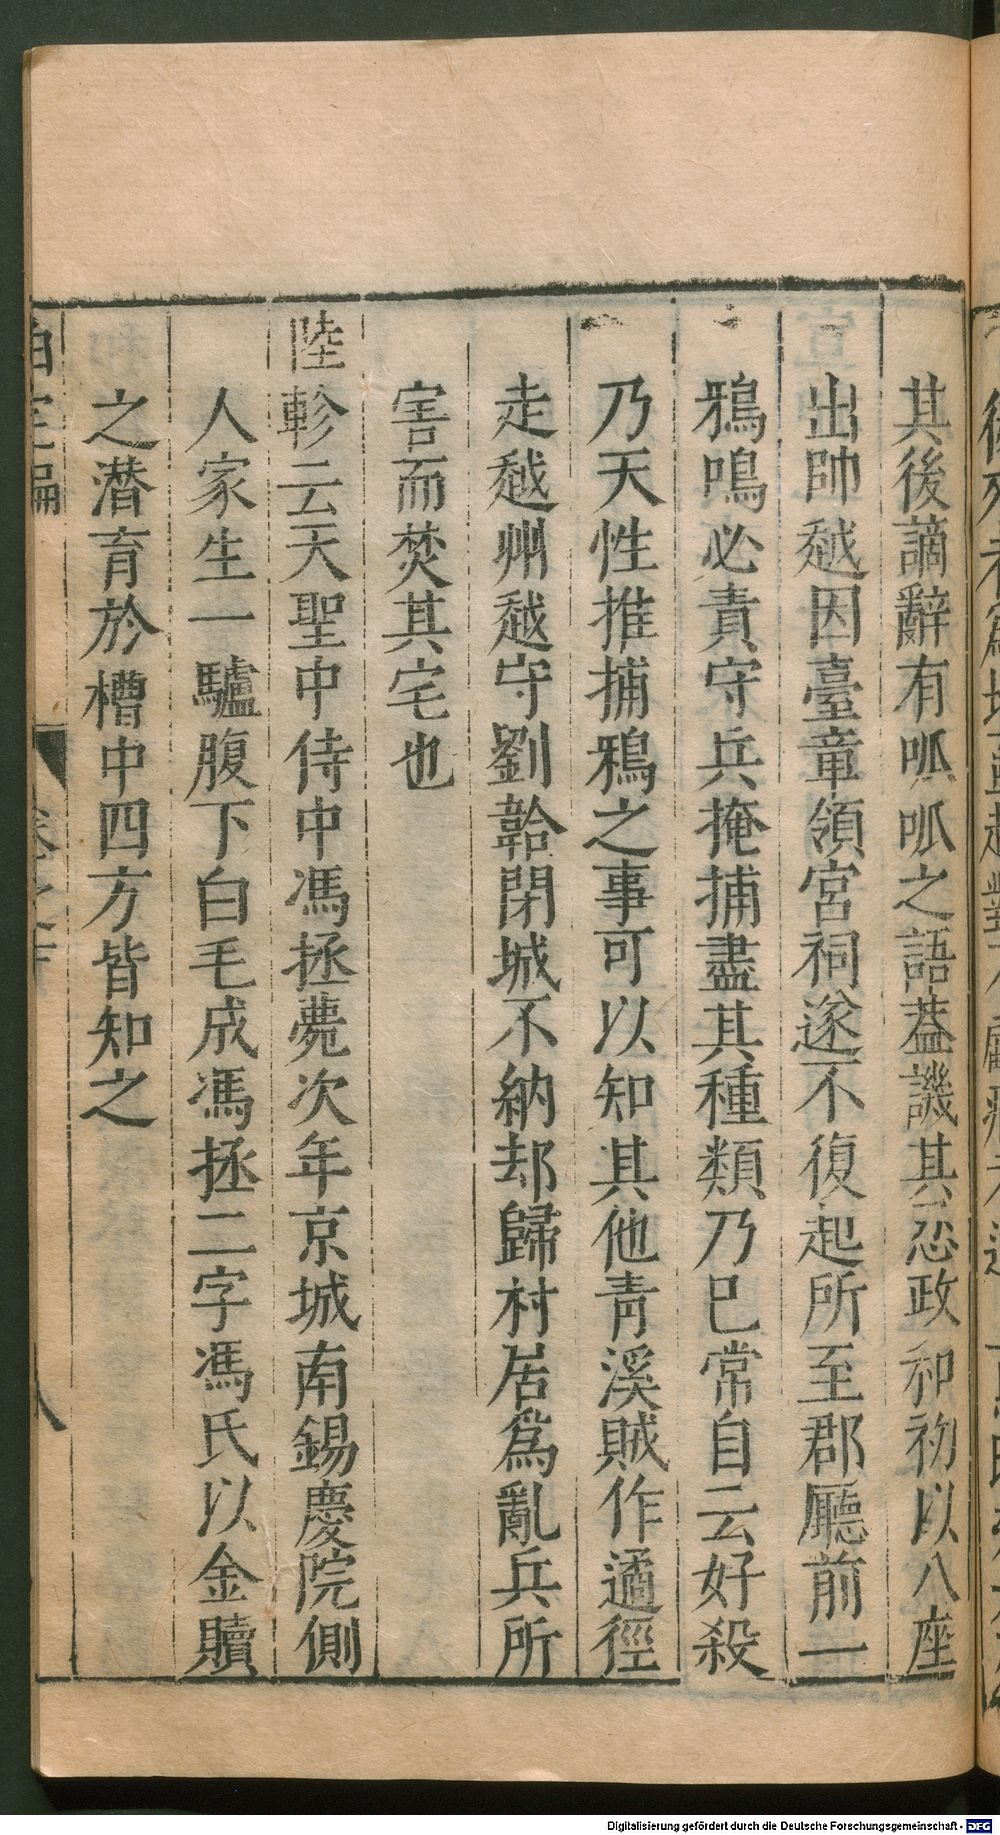 其後謫辭有呱呱之語葢譏其忍政和初以八座
出帥越因臺章領宮祠遂不復起所至郡廳前一
鴉鳴必責守兵掩捕盡其種類乃巳常自云好殺
乃天性推捕鴉之事可以知其他青溪賊作遁徑
走越州越守劉韐閉城不納却歸村居爲亂兵所
害而焚其宅也
陸軫云天聖中侍中馮拯薨次年京城南錫慶院側
人家生一驢腹下白毛成馮拯二字馮氏以金贖
之潛育於槽中四方皆知之
泊宅編
卷之下
八
Digitalisierung gefördert durch die Deutsche Forschungsgemeinschaft - DFG